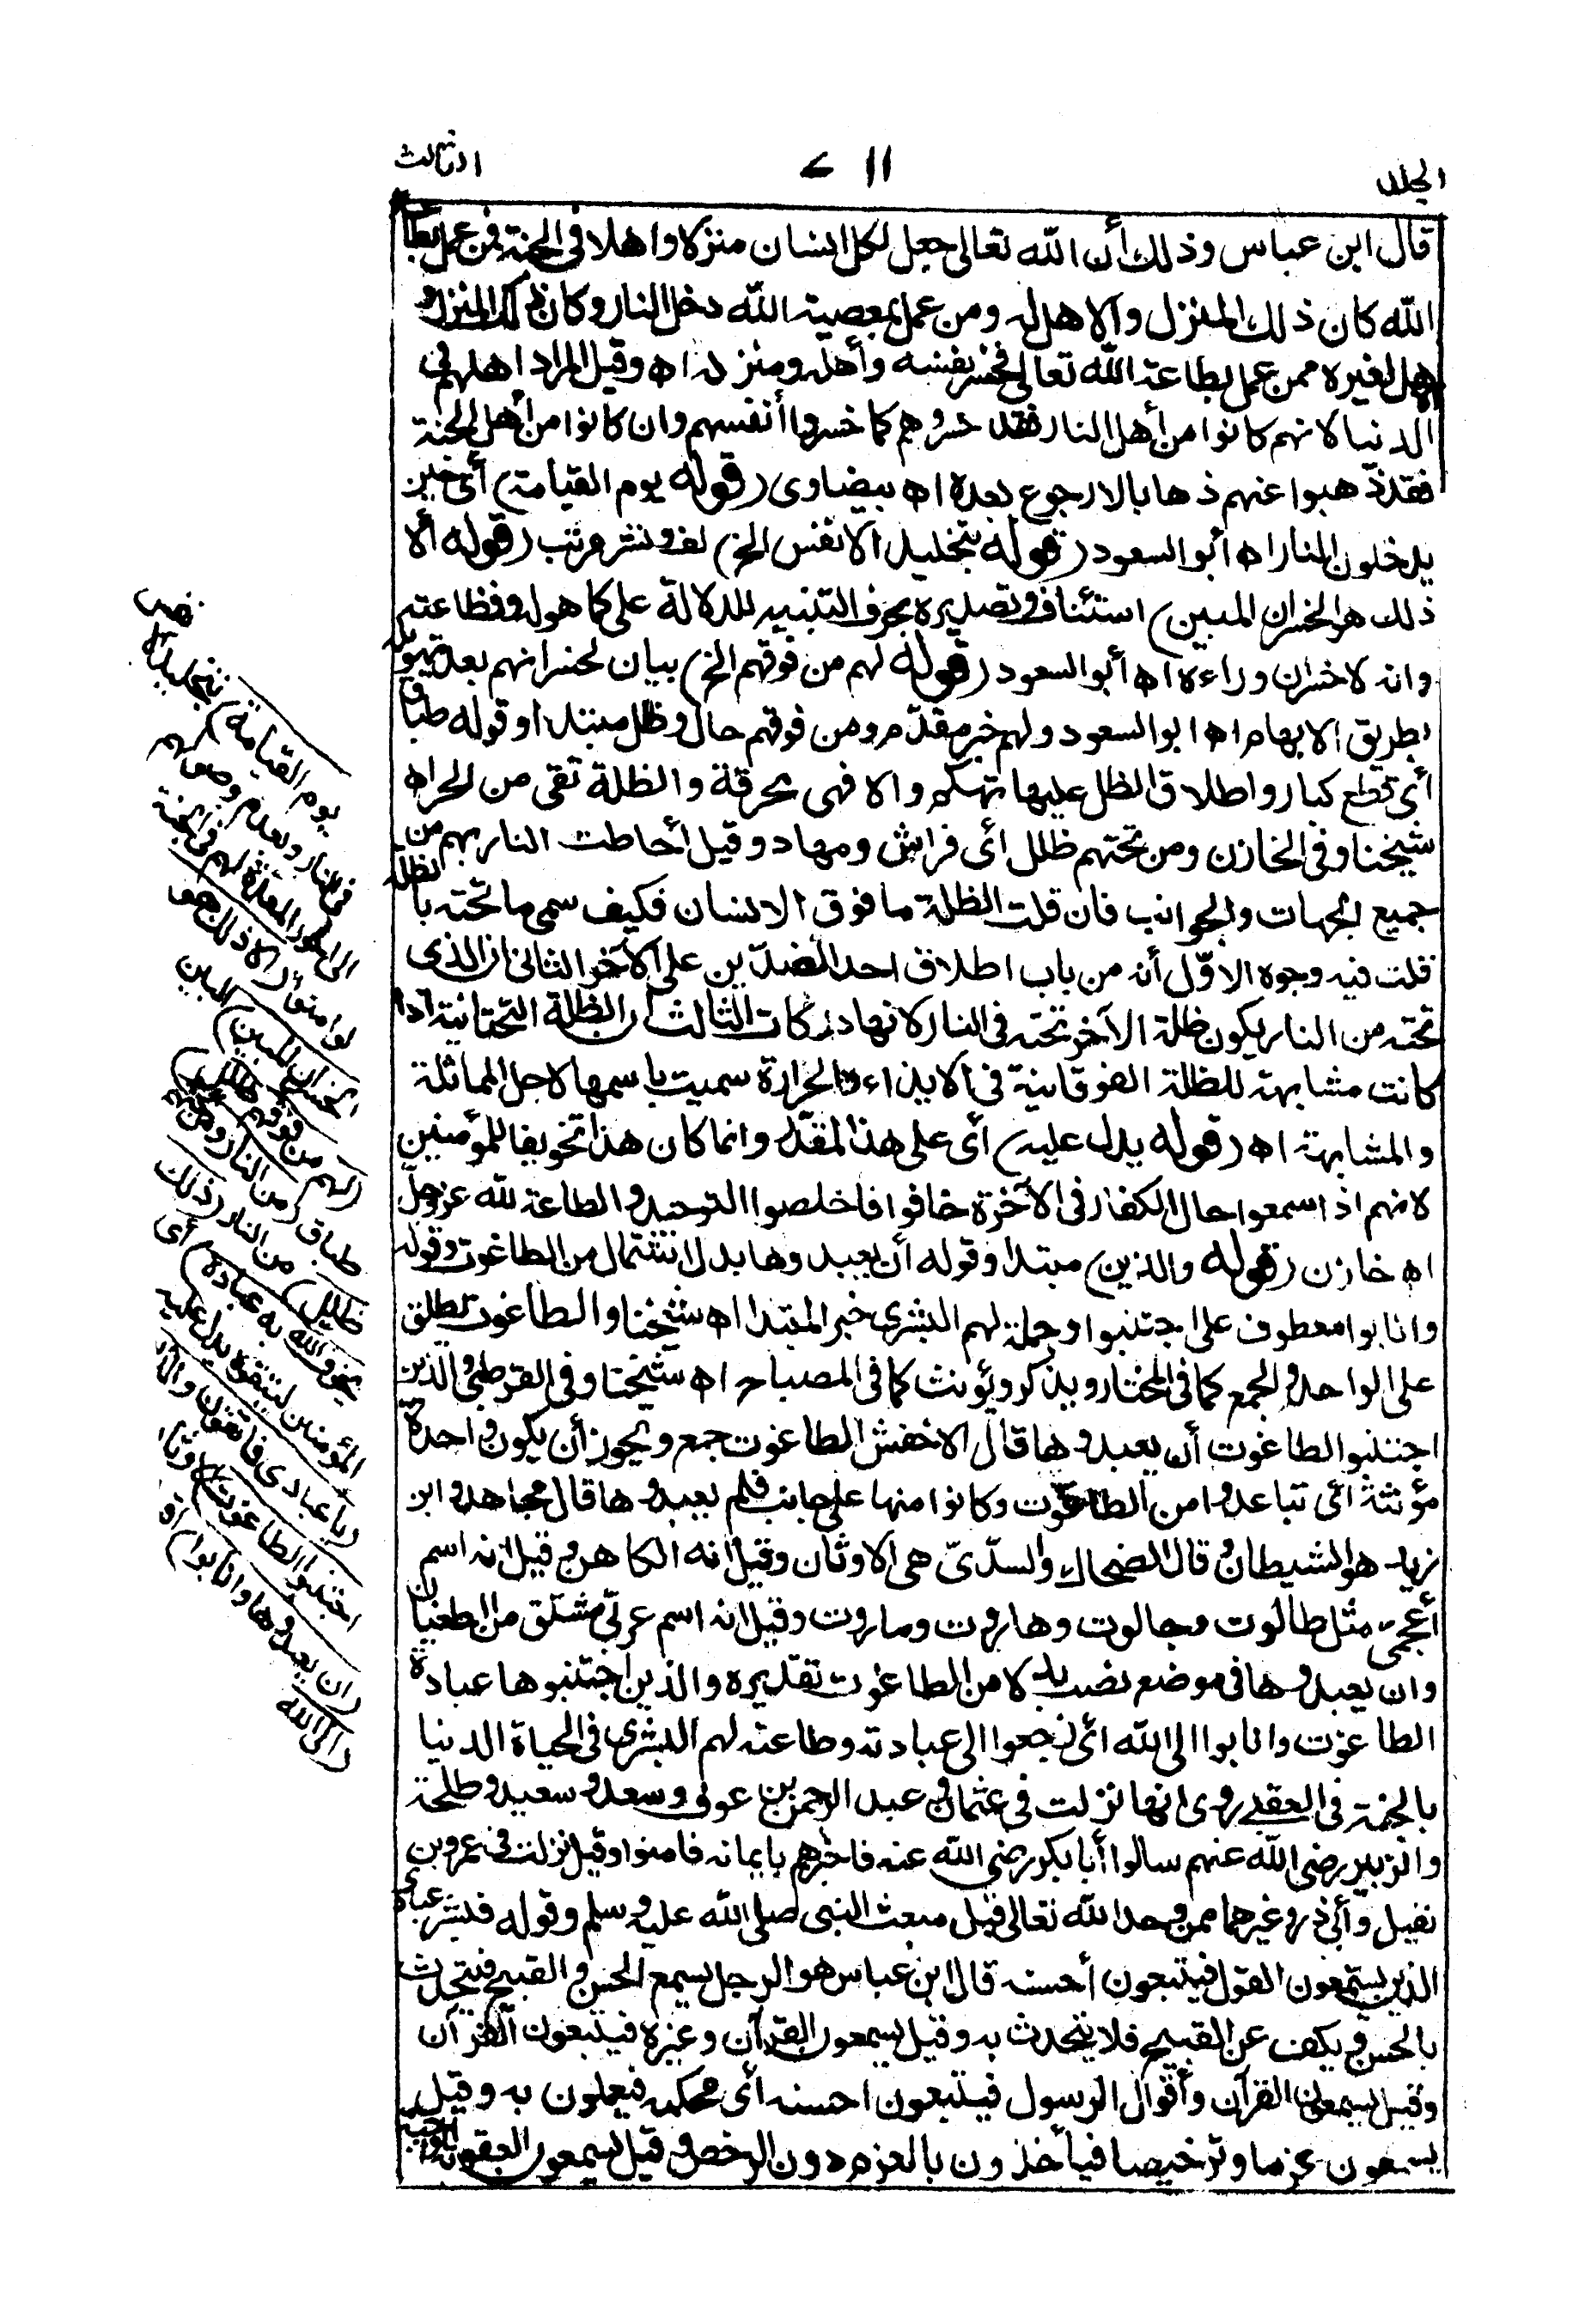 الجلد
١١
الثالث
قال ابن عباس وذلك أن الله تعالى جعل لكل انسان منزلا واهلا في الجنة فمن عمل بطا
الله كان ذلك المنزل والاهل له ومن عمل بمعصية الله دخل النار وكان ذلك المنزل و
الاهل لغيره ممن عمل بطاعة الله تعالى فخسر نفسه وأهله ومنزله اه وقيل المراد اهلهم في
الدنيا لانهم كانوا من أهل النار فقد خسروهم كما خسروا أنفسهم وان كانوا من أهل الجنة
فقد ذهبوا عنهم ذهابا لا رجوع بعده اه بيضاوى (قوله يوم القيامة) أى حين
يدخلون النار اه أبو السعود (قوله بتخليد الانفس الخ) لف ونشر مرتب (قوله ألا
ذلك هو الخسران المبين) استئناف وتصديره بحرف التنبيه للدلالة على كما هوله وفظاعته
وانه لا خسران وراءه اه أبو السعود (قوله لهم من فوقهم الخ) بيان لخسرانهم بعد تهويله
بطريق الابهام اه ابو السعود ولهم خبر مقدم ومن فوقهم حال وظلل مبتدا وقوله طباق
أى قطع كبار واطلاق الظلل عليها تهكم والا فهى محرقة والظلة تقى من الحر اه
شيخنا وفى الخازن ومن تحتهم ظلل أى فراش ومهاد وقيل أحاطت النار بهم من
جميع الجهات والجوانب فان قلت الظلة ما فوق الانسان فكيف سمى ما تحته بالظلة
قلت فيه وجوه الاول أنه من باب اطلاق احد الضدين على الآخر الثانى ان الذى
تحته من النار يكون ظلة الآخر تحته في النار لانها دركات الثالث ان الظلة التحتانية اذا
كانت مشابهة للظلة الفوقانية في الايذاء والحرارة سميت باسمها لاجل المماثلة
والمشابهة اه (قوله يدل عليه) أى على هذا المقدر وانما كان هذا تخويفا للمؤمنين
لانهم اذا سمعوا حال الكفار فى الآخرة خافوا فاخلصوا التوحيد والطاعة لله عز وجل
اه خازن (قوله والذين) مبتدا وقوله أن يعبدوها بدل اشتمال من الطاغوت وقوله
وانابوا معطوف على اجتنبوا وجملة لهم البشرى خبر المبتدا اه شيخنا والطاغوت تطلق
على الواحد والجمع كما فى المختار ويذكر ويؤنث كما فى المصباح اه شيخنا وفى القرطبى والذين
اجتنبوا الطاغوت أن يعبدوها قال الاخفش الطاغوت جمع ويجوز أن يكون واحدة
مؤنثة أى تباعدوا من الطاغوت وكانوا منها على جانب فلم يعبدوها قال مجاهد وابن
زيد هو الشيطان وقال الضحاك والسدّىّ هى الاوثان وقيل انه الكاهن وقيل انه اسم
أعجمى مثل طالوت وجالوت وهاروت وماروت وقيل انه اسم عربى مشتق من الطغيان
وان يعبدوها فى موضع نصب بدلا من الطاغوت تقديره والذين اجتنبوها عبادة
الطاغوت وانابوا الى الله أى رجعوا الى عبادته وطاعته لهم البشرى فى الحياة الدنيا
بالجنة فى العقبى روى انها نزلت فى عثمان وعبد الرحمن بن عوف وسعد وسعيد وطلحة
والزبير رضى الله عنهم سالوا أبا بكر رضى الله عنه فاخبرهم بايمانه فامنوا وقيل نزلت فى عمرو بن
نفيل وأبى ذر وغيرهما ممن وحد الله تعالى قبل مبعث النبى صلى الله عليه وسلم وقوله فبشر عبادى
الذين يستمعون القول فيتبعون أحسنه قال ابن عباس هو الرجل يسمع الحسن والقبيح فيتحدث
بالحسن ويكف عن القبيح فلا يتحدث به وقيل يسمعون القرآن وغيره فيتبعون القرآن
وقيل يسمعون القرآن وأقوال الرسول فيتبعون احسنه أى محكمه فيعملون به وقيل
يسمعون عزما وترخيصا فيأخذون بالعزم دون الرخص وقيل يسمعون العقوبة
يوم القيامة) بتخليد الا
فى النار وبعدم وصولهم
الى الحور المعدة لهم فى الجنة
لو امنوا (ألا ذلك هو
الخسران المبين) البين
(لهم من فوقهم ظلل)
طباق (من النار ومن تحتهم
ظلل) من النار (ذلك
يخوف الله به عباده) أى
المؤمنين ليتقوه يدل عليه
(يا عبادى فاتقون والذين
اجتنبوا الطاغوت) الاوثان
(أن يعبدوها وانابوا)
(الى الله